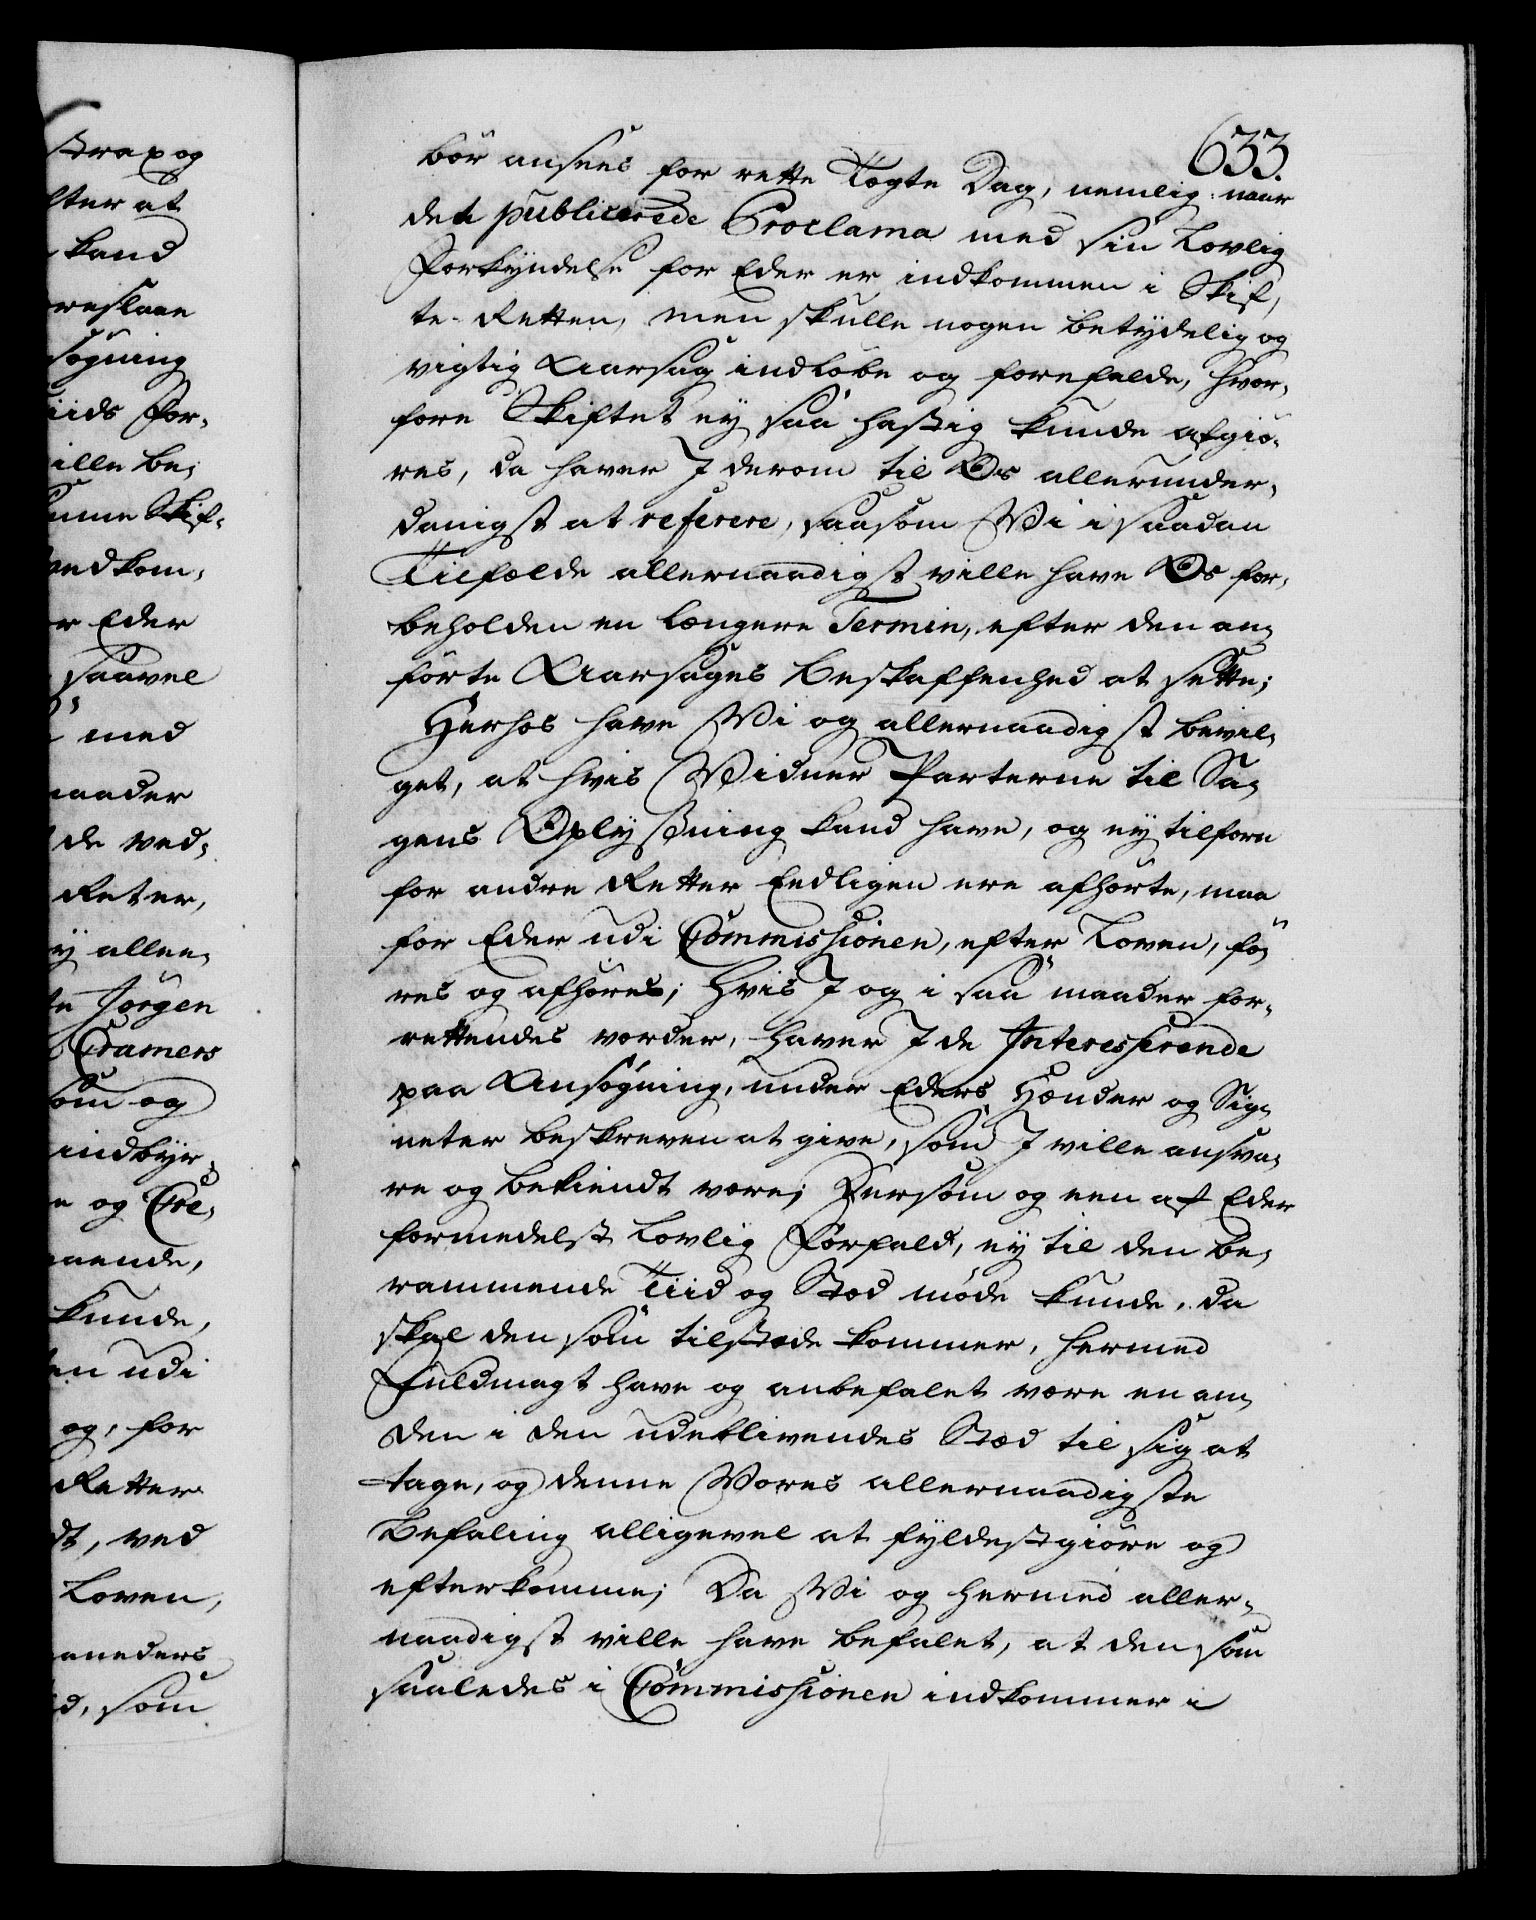 strax og
lter at
kand
reslaae
søgning
iids For-
ille be-
unne Skif-
vedkom-
r Eder
saavel
med
maader
de ved-
Reter,
y allee-
te Jørgen
Cramers
som og
indbyr-
e og Cre-
aaende,
kunde,
en udi
og, for
Retter
dt, ved
Loven,
aaneders
d, som
633.
bør ansees for rette Tægte Dag, nemlig: naar
det publicerede Proclama med sin Lovlig
Forkyndelse for Eder er indkommen i Skif,
te-Retten, men skulle nogen betydelig og
vigtig Aarsag indløbe og forefalde, hvor-
fore Skiftet ey saa hastig kunde afgiø-
res, da haver I derom til Os allerunder-
danigst at referere, saasom Vi i saadan
Tilfælde allernaadigst ville have Os for-
beholden en længere Termin, efter den an-
førte Aarsages Beskaffenhed at sætte;
Herhos have Vi og allernaadigst bevil-
get, at hvis Vidner Parterne til Sa-
gens Oplysning kand have, og ey tilforn
for andre Retter Eedligen ere afhørte, maa
for Eder udi Commissionen, efter Loven, fø-
res og afhøres; Hvis I og i saa maader for-
rettendes vorder, haver I de Interesserende
paa Ansøgning, under Eders Hænder og Sig-
neter beskreven at give, som I ville ansva-
re og bekiendt være; Dersom og een af Eder
formedelst Lovlig Forfald, ey til den be-
rammende Tiid og Stæd møde kunde, da
skal den som tilstæde kommer, hermed
Fuldmagt have og anbefalet være en an-
den i den udeblivendes Stæd til sig at
tage, og denne Vores allernaadigste
Befaling alligevel at fyldestgiøre og
efterkomme; Da Vi og hermed aller-
naadigst ville have befalet, at den som
saaledes i Commissionen indkommer i